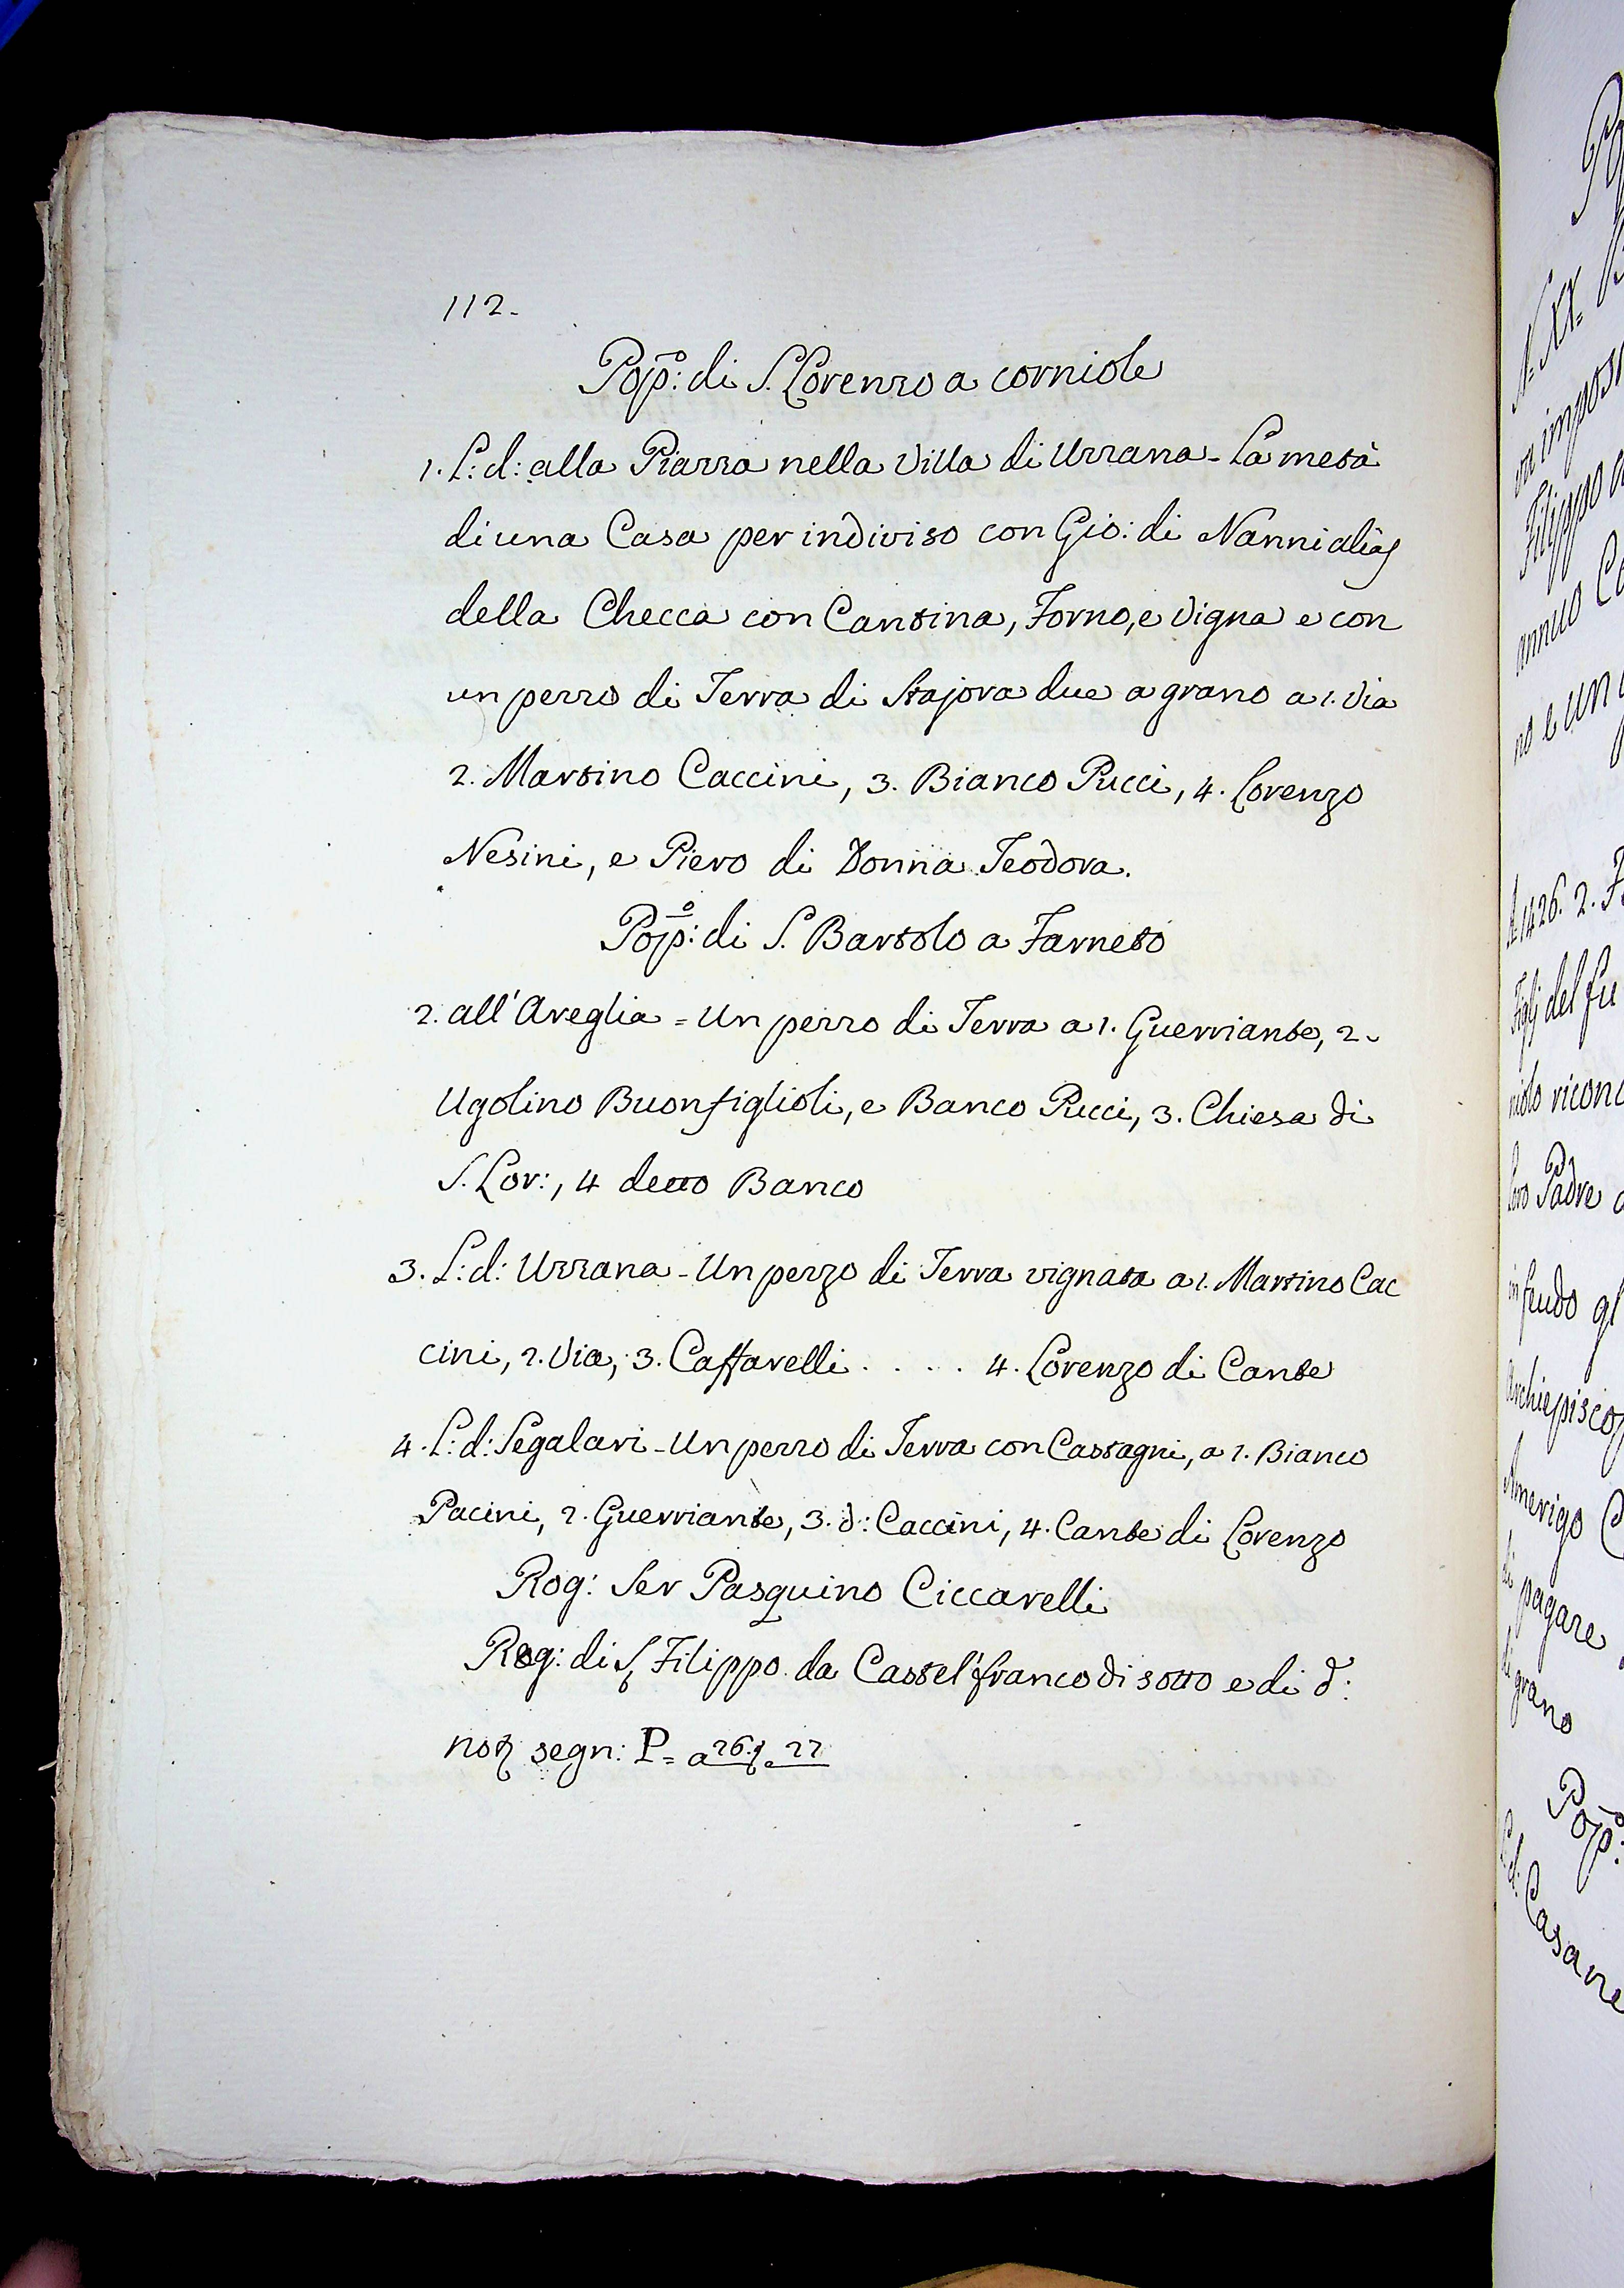 112.
Pop̄o: di S. Lorenzo a corniole
1. L: d: alla Piazza nella Villa di Uzzana - La metà
di una Casa per indiviso con Gio: di Nanni aliàs
della Checca con Cantina, Forno, e Vigna e con
un pezzo di Terra di Stajora due a grano a 1. Via
2. Martino Caccini, 3. Bianco Pucci, 4. Lorenzo
Nesini, e Piero di Donna Teodora.
Pop̄o: di S. Bartolo a Farneto
2. all'Aveglia = Un pezzo di Terra a 1. Guerriante, 2.
Ugolino Buonfiglioli, e Banco Pucci, 3. Chiesa di
S. Lor:, 4 detto Banco
3. L: d: Uzzana - Un pezzo di Terra vignata a 1. Martino Cac
cini, 2. Via, 3. Caffarelli . . . . 4. Lorenzo di Cante
4. L: d: Segalari - Un pezzo di Terra con Castagni, a 1. Bianco
Pacini, 2. Guerriante, 3. d: Caccini, 4. Cante di Lorenzo
Rog: Ser Pasquino Ciccarelli
Rog: di S. Filippo da Castel'franco di sotto e di d:
segn: P = a 26. 27
N: XX=
Filippo
annuo
no e un
A 1426. 2.
Figlj del fu
loro Padre
in feudo gl
Amerigo
di pagare
di grano
Pop̄o:
L: d: